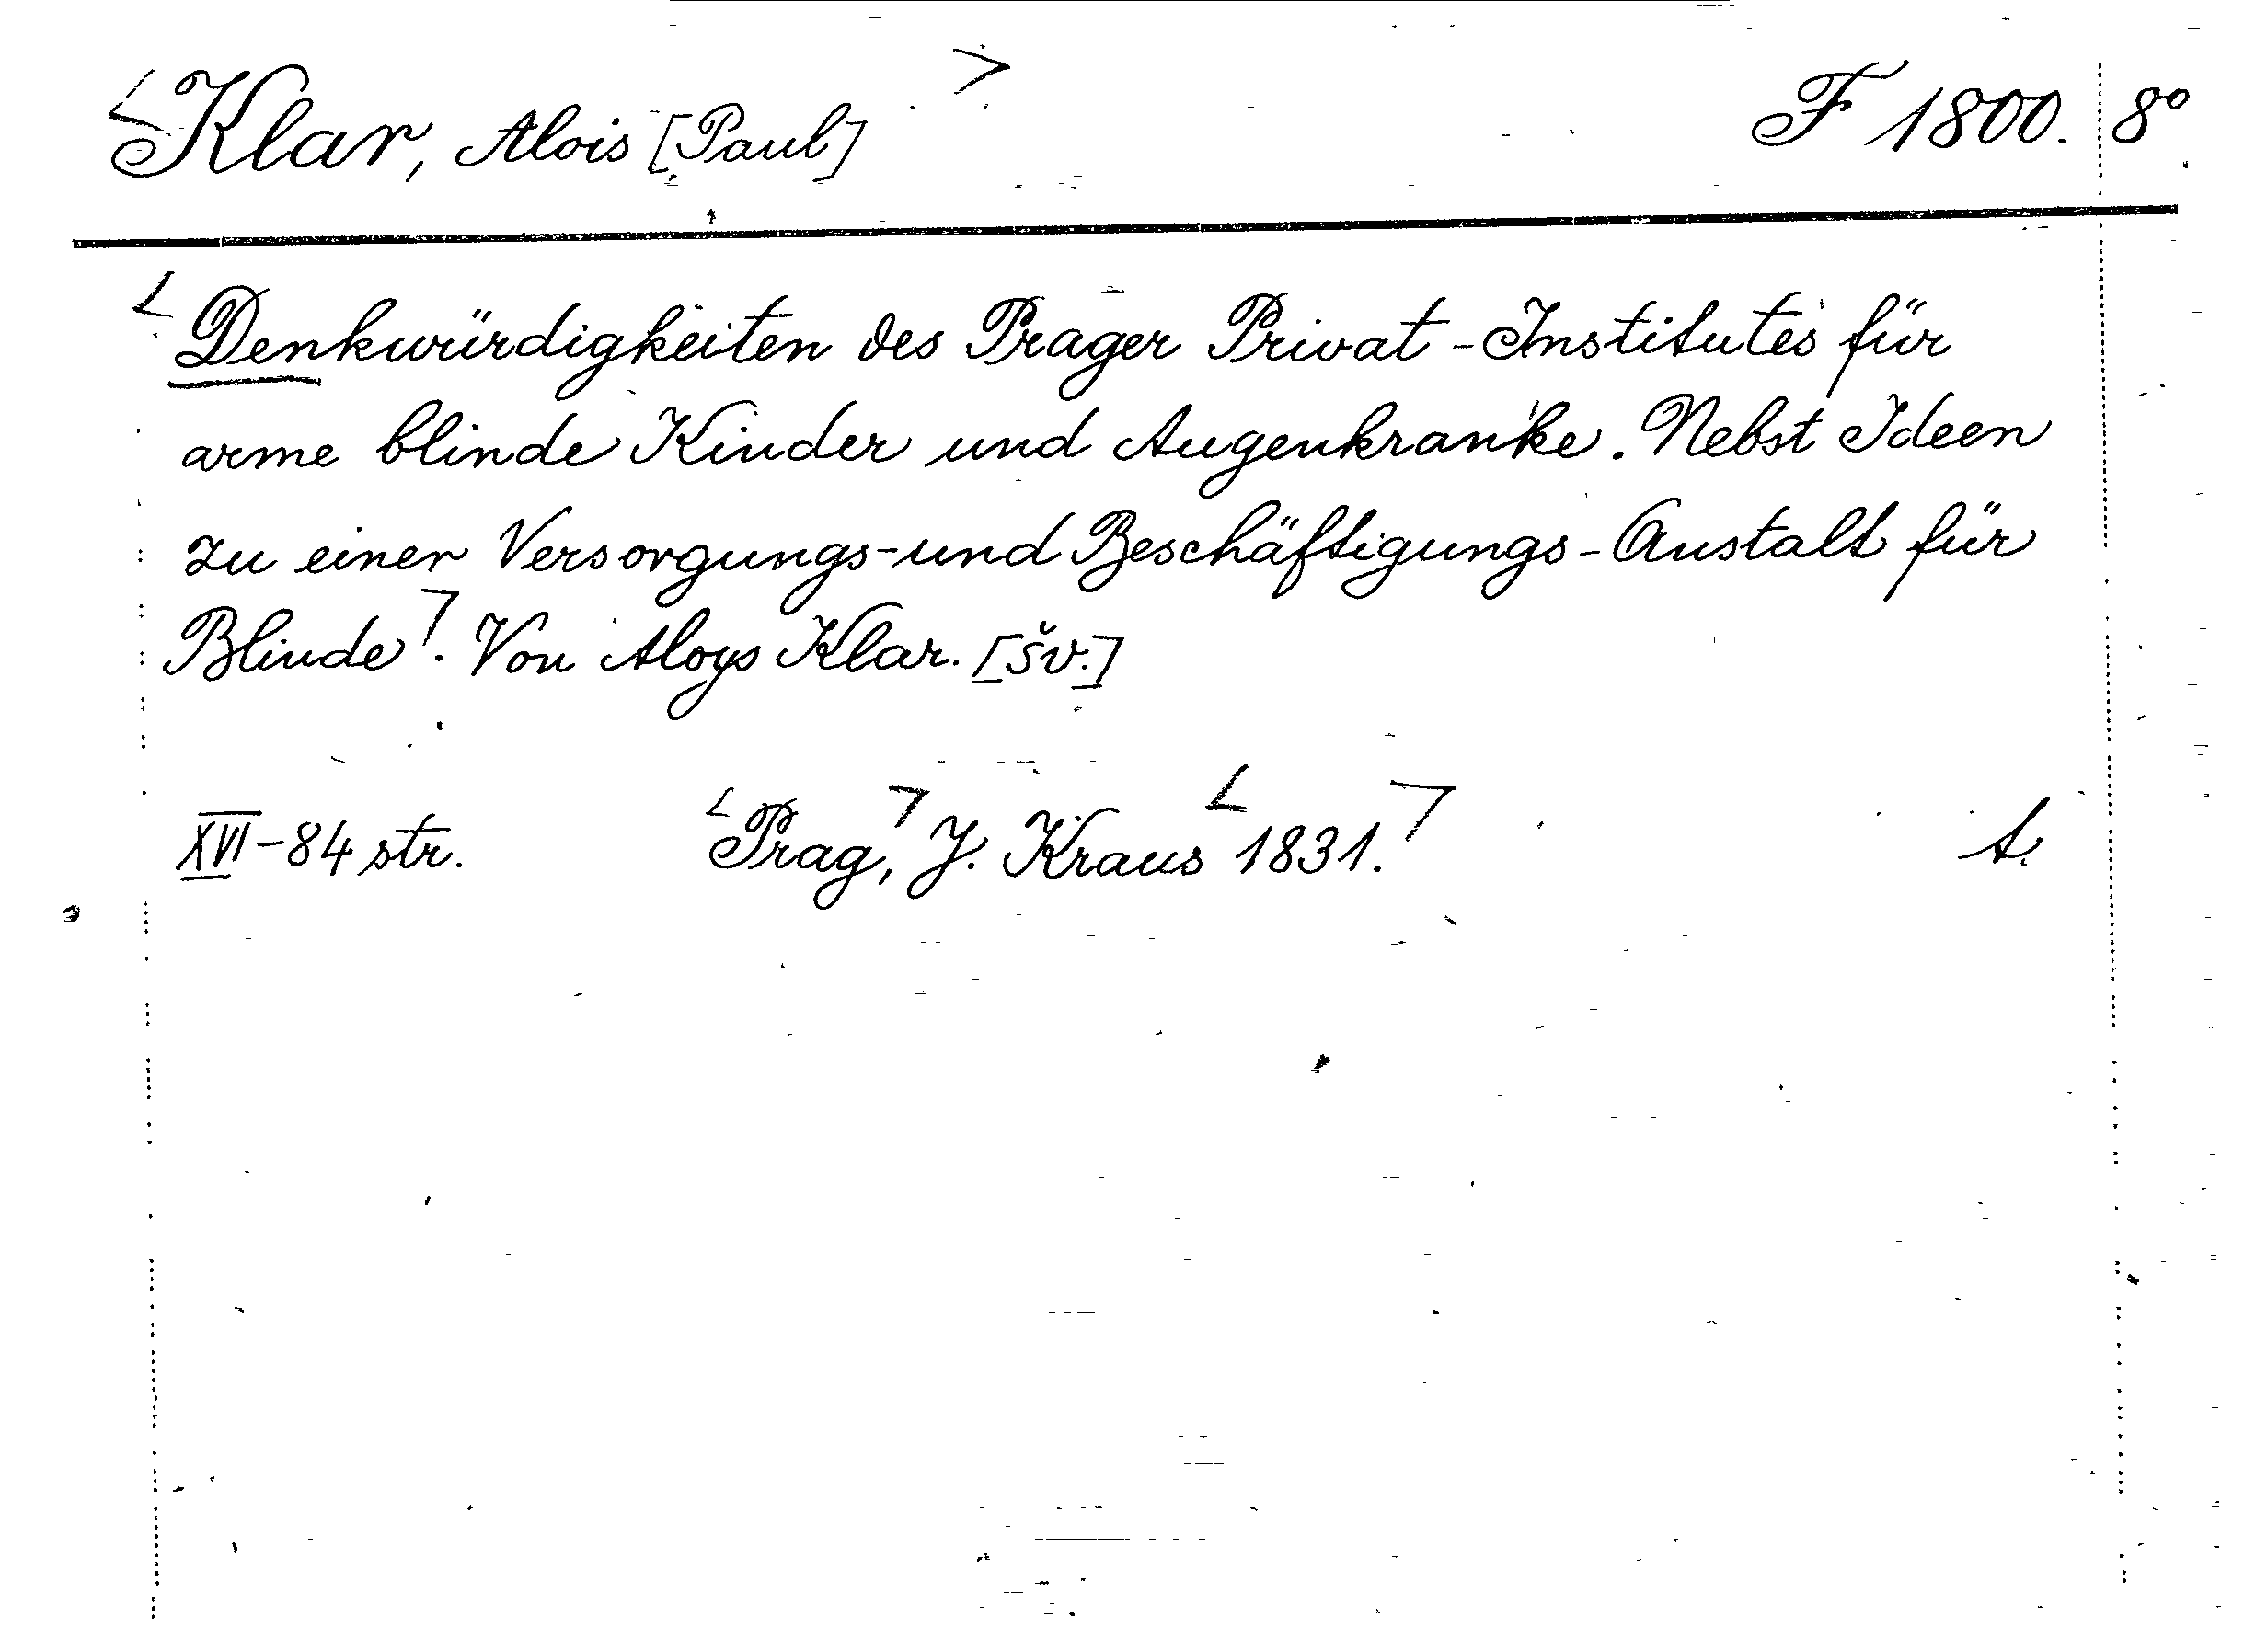 <Klar, Alois [Paul]> F 1800. 8°
<Denkwürdigkeiten des Prager Privat-Institutes für
arme blinde Kinder und Augenkranke. Nebst Ideen
zu einer Versorgungs-und Beschäftigungs-Anstalt für
Blinde>. Von Aloys Klar. [Šv.]
XVI-84 str. <Prag,> J. Kraus <1831.>